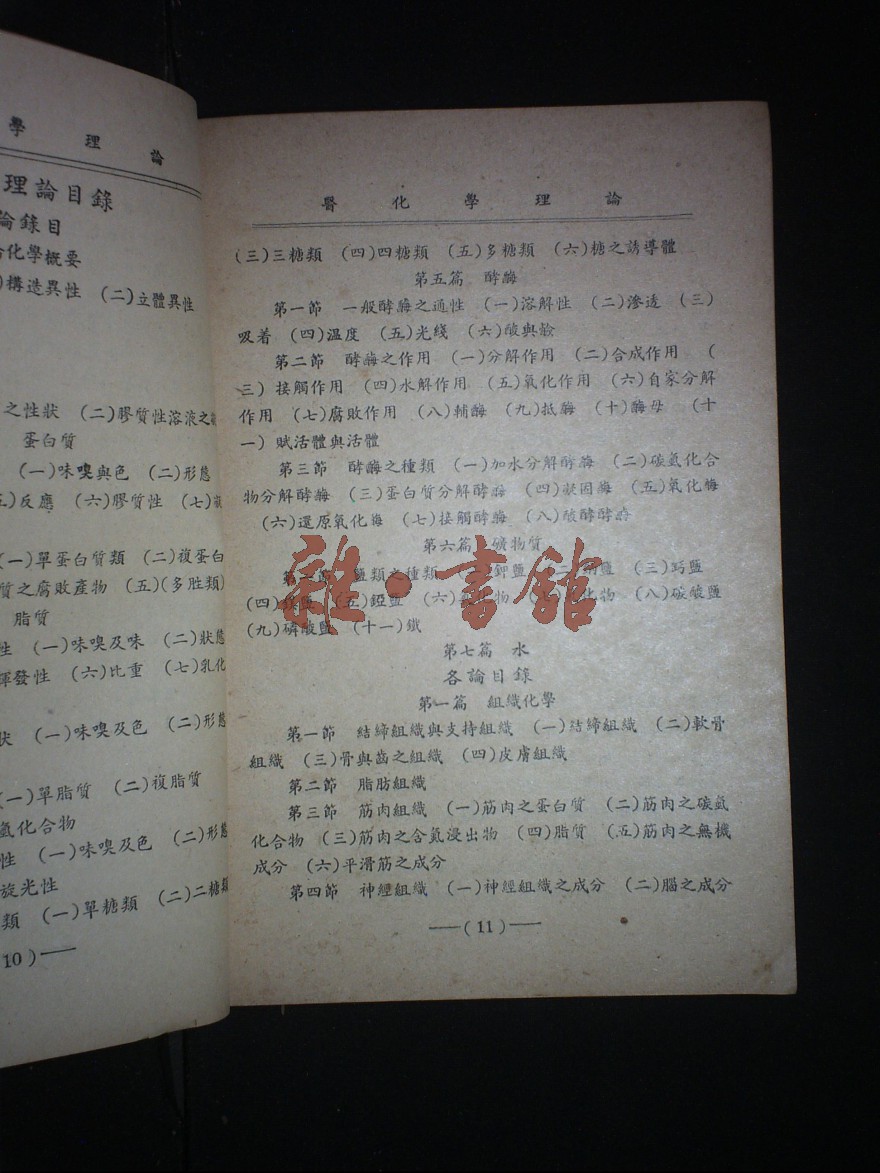 學理論
理論目錄
論錄目
化學概要
構造異性 (二)立體異性
之性狀 (二)膠質性溶液之
蛋白質
(一)味嗅與色 (二)形態
反應 (六)膠質性 (七)
(一)單蛋白質類 (二)複蛋白
質之腐敗產物 (五)(多胜類)
脂質
性 (一)味嗅及味 (二)狀態
揮發性 (六)比重 (七)乳化
狀 (一)味嗅及色 (二)形態
(一)單脂質 (二)複脂質
氫化合物
性 (一)味嗅及色 (二)形態
旋光性
類 (一)單糖類 (二)二糖類
10)——
醫化學理論
(三)三糖類 (四)四糖類 (五)多糖類 (六)糖之誘導體
第五篇 酵酶
第一節 一般酵酶之通性 (一)溶解性 (二)滲透 (三)
吸着 (四)溫度 (五)光綫 (六)酸與鹼
第二節 酵酶之作用 (一)分解作用 (二)合成作用 (
三) 接觸作用 (四)水解作用 (五)氧化作用 (六)自家分解
作用 (七)腐敗作用 (八)輔酶 (九)抵酶 (十)酶母 (十
一) 賦活體與活體
第三節 酵酶之種類 (一)加水分解酵酶 (二)碳氫化合
物分解酵酶 (三)蛋白質分解酵酶 (四)凝固酶 (五)氧化酶
(六)還原氧化酶 (七)接觸酵酶 (八)酸酵酵酶
第六篇 礦物質
第一節 鹽類之種類 鉀鹽 鹽 (三)鈣鹽
(四)鎂鹽 (五)錏鹽 (六) 物 化物 (八)碳酸鹽
(九)磷酸鹽 (十一)鐵
第七篇 水
各論目錄
第一篇 組織化學
第一節 結締組織與支持組織 (一)結締組織 (二)軟骨
組織 (三)骨與齒之組織 (四)皮膚組織
第二節 脂肪組織
第三節 筋肉組織 (一)筋肉之蛋白質 (二)筋肉之碳氫
化合物 (三)筋肉之含氮浸出物 (四)脂質 (五)筋肉之無機
成分 (六)平滑筋之成分
第四節 神經組織 (一)神經組織之成分 (二)腦之成分
——(11)——
雜·書舘